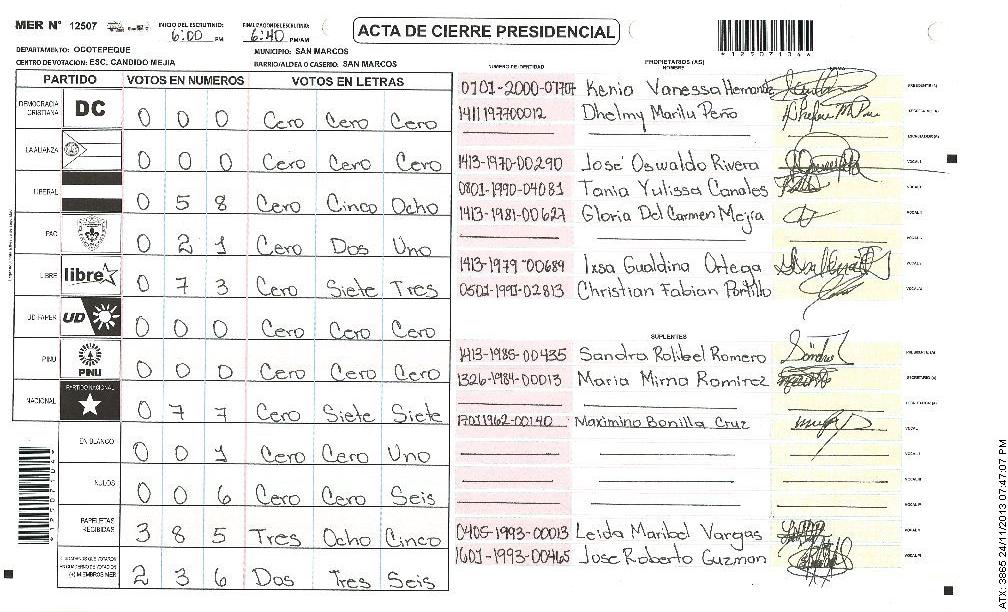 MER N° 12507 INICIO DEL ESCRUTINIO: 6:00 PM FINALIZACION DEL ESCRUTINIO: 6:40 PM/AM
ACTA DE CIERRE PRESIDENCIAL
DEPARTAMENTO: OCOTEPEQUE MUNICIPIO: SAN MARCOS
CENTRO DE VOTACION: ESC. CANDIDO MEJIA BARRIO/ALDEA O CASERIO: SAN MARCOS
PARTIDO VOTOS EN NUMEROS VOTOS EN LETRAS
DEMOCRACIA CRISTIANA DC 0 0 0 Cero Cero Cero
LA ALIANZA 0 0 0 Cero Cero Cero
LIBERAL 0 5 8 Cero Cinco Ocho
PAC 0 2 1 Cero Dos Uno
LIBRE libre 0 7 3 Cero Siete Tres
UD FAPER UD 0 0 0 Cero Cero Cero
PINU PINU 0 0 0 Cero Cero Cero
NACIONAL PARTIDO NACIONAL 0 7 7 Cero Siete Siete
EN BLANCO 0 0 1 Cero Cero Uno
NULOS 0 0 6 Cero Cero Seis
PAPELETAS RECIBIDAS 3 8 5 Tres Ocho Cinco
(+) MIEMBROS MER 2 3 6 Dos Tres Seis
NUMERO DE IDENTIDAD PROPIETARIOS (AS) NOMBRE FIRMA
0701-2000-07707 Kenia Vanessa Hernandez PRESIDENTE (A)
1411197700012 Dhelmy Marilu Peño SECRETARIO (A)
ESCRUTADOR (A)
1413-1970-00290 José Oswaldo Rivera VOCAL I
0801-1990-04081 Tania Yulissa Canales
1413-1981-00627 Gloria Del Carmen Mejía
1413-1979-00689 Ixsa Gualdina Ortega
0502-1990-02813 Christian Fabian Portillo
SUPLENTES
1413-1985-00435 Sandra Rolibel Romero PRESIDENTE (A)
1326-1984-00013 Maria Mirna Ramirez SECRETARIO (A)
17011962-00140 Maximino Bonilla Cruz VOCAL I
0405-1993-00013 Leida Maribel Vargas
1601-1993-00465 Jose Roberto Guzman
ATX: 3865 24/11/2013 07:47:07 PM